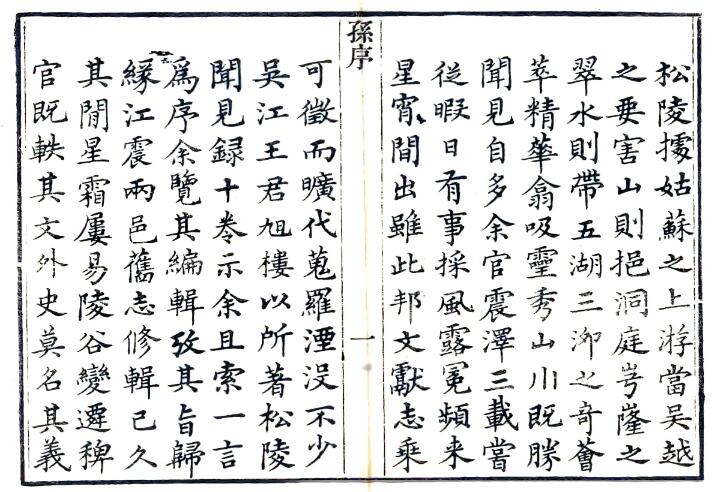 松陵據姑蘇之上游當吳越
之要害山則挹洞庭岢𡼭之
翠水則帶五湖三泖之奇薈
萃精華翕吸靈秀山川既勝
聞見自多余官震澤三載嘗
從暇日有事採風露冕頻来
星宵間出雖此邦文獻志乘
孫序
一
可徵而曠代蒐羅湮沒不少
吳江王君旭樓以所著松陵
聞見録十卷示余且索一言
爲序余覽其編輯攷其旨歸
緣江震兩邑舊志修輯已久
其間星霜屢易陵谷變遷稗
官既軼其文外史莫名其義